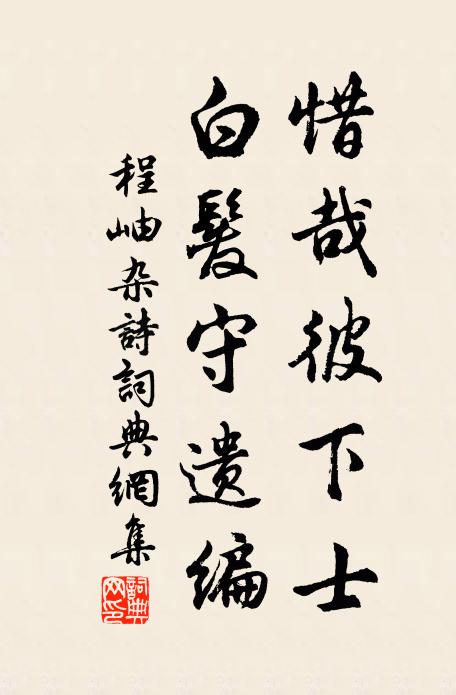 惜哉彼下士
白髮守遺編
程岫杂詩詞典網集
詞典网印